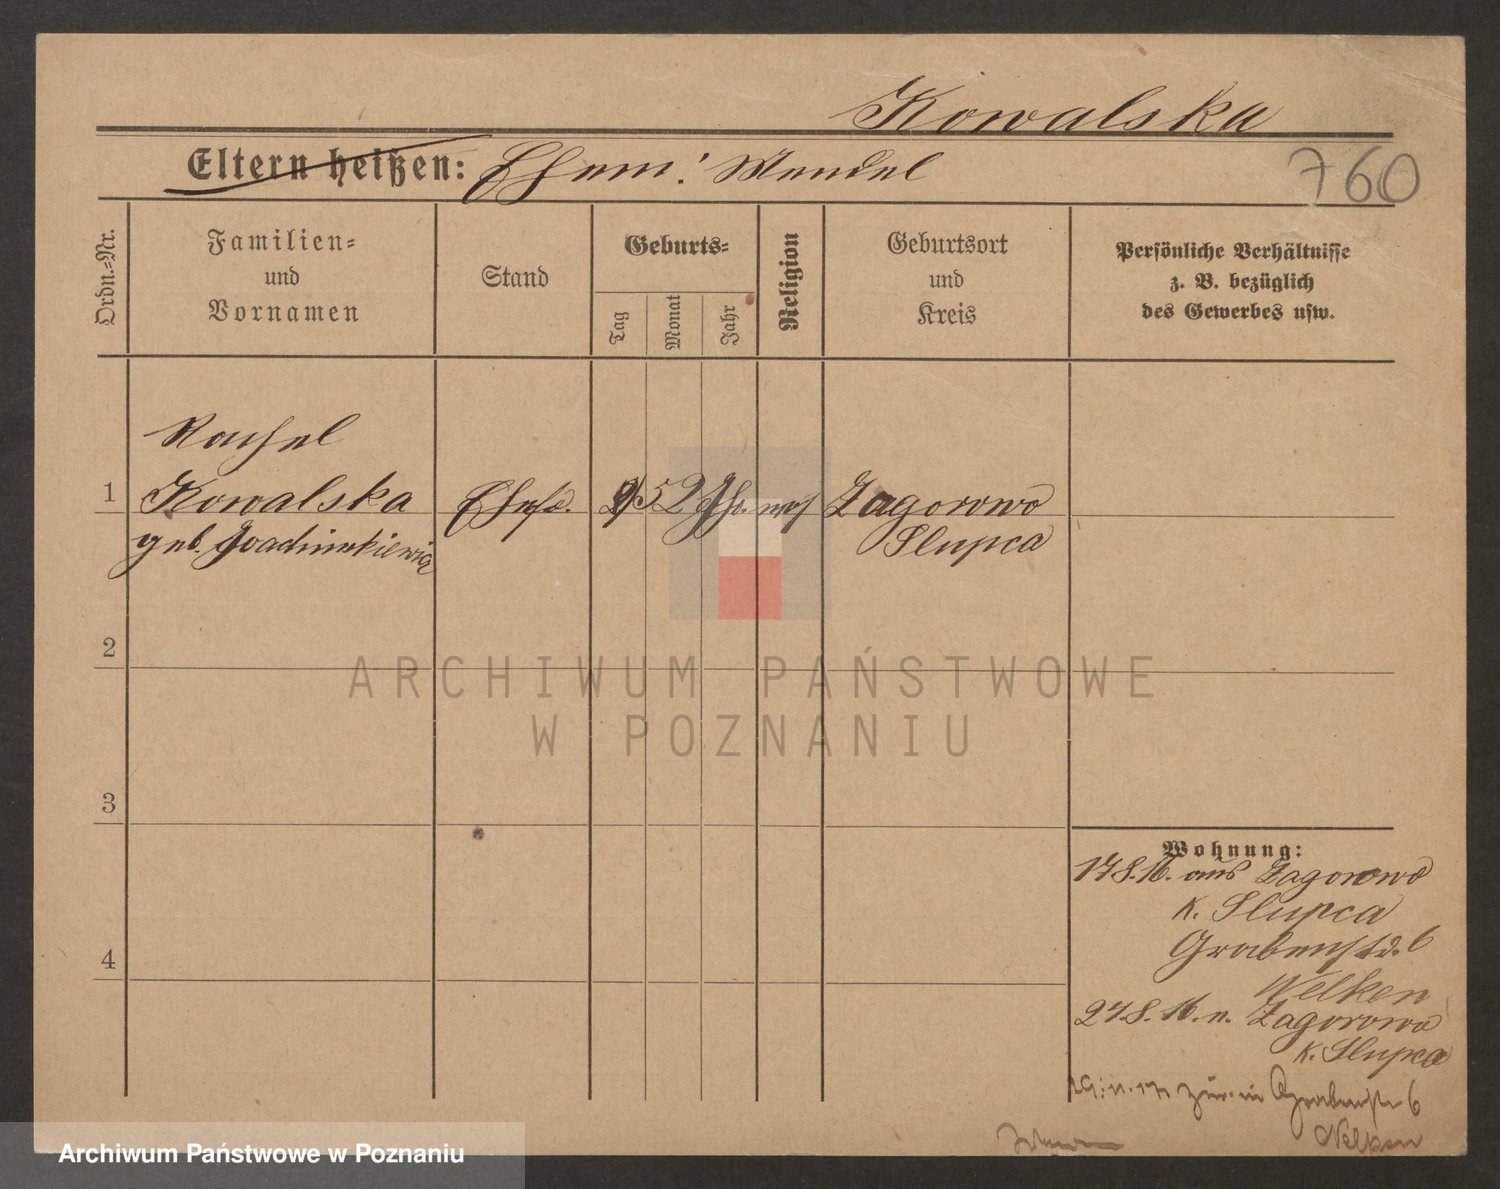 Kowalska
Eltern heißen: Ehem: Mendel
760
Ordn.-Nr.
Familien-
und
Vornamen
Stand
Geburts-
Tag
Monat
Jahr
Religion
Geburtsort
und
Kreis
Persönliche Verhältnisse
z. B. bezüglich
des Gewerbes usw.
Rachel
1 Kowalska Ehefr. 52 Jhr. mos Zagorowo
geb. Joachimkiewicz Slupca
2
ARCHIWUM PAŃSTWOWE
W POZNANIU
3
4
Wohnung:
17.8.16. aus Zagorowo
K. Slupca
Grabenstr. 6
Nelken
27.8.16. n. Zagorowo
K. Slupca
zur. in Grabenstr 6
Nelken
Archiwum Państwowe w Poznaniu